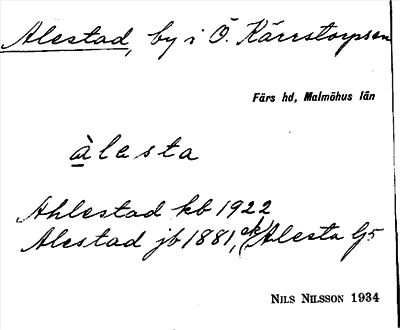 Alestad, by i Ö. Kärrstorps sn
Färs hd, Malmöhus län
àlesta
Ahlestad kb 1922
Alestad jb 1881, ek) Alesta G5
NILS NILSSON 1934